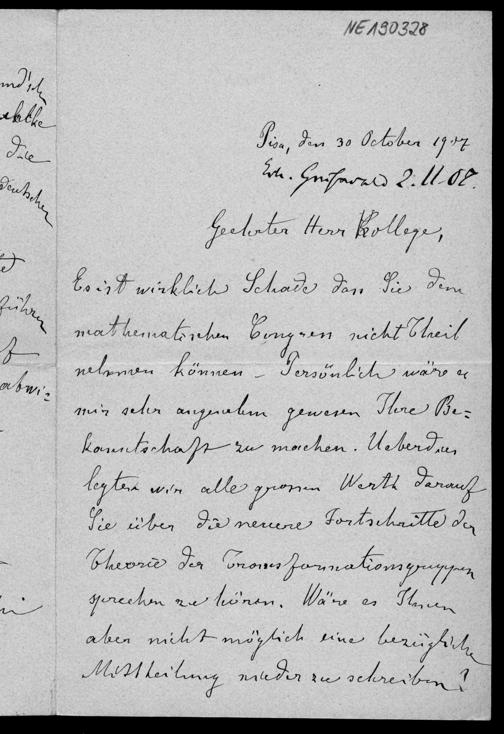 NE190328
Pisa, den 30 October 1907
Erh. Greifswald 2.11.07.
Geehrter Herr Kollege,
Es ist wirklich Schade dass Sie dem
mathematischen Congress nicht Theil
nehmen können – Persönlich wäre es
mir sehr angenehm gewesen Ihre Be=
kanntschaft zu machen. Ueberdies
legten wir alle grossen Werth darauf
Sie über die neuere Fortschritte der
Theorie der Transformationsgruppen
sprechen zu hören. Wäre es Ihnen
aber nicht möglich eine bezügliche
Mittheilung nieder zu schreiben?
die
deutschen
führen